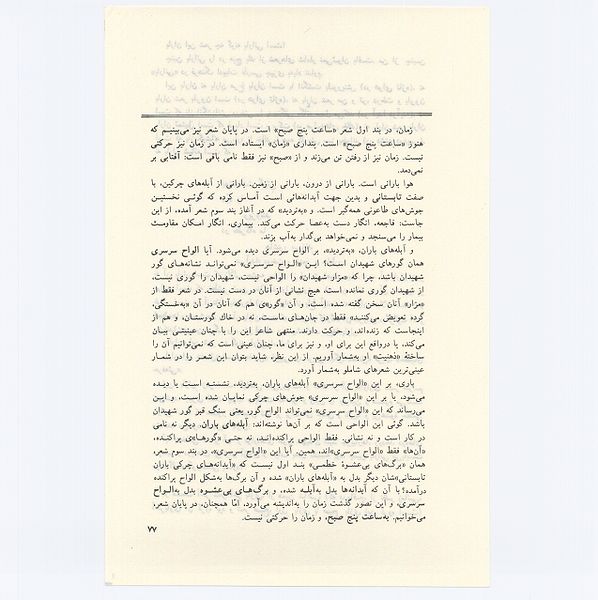 زمان، در بند اول شعر «ساعت پنج صبح» است. در پایان شعر نیز می‌بینیم که
هنوز «ساعت پنج صبح» است. پنداری «زمان» ایستاده است. در زمان نیز حرکتی
نیست. زمان نیز از رفتن تن می‌زند و از «صبح» نیز فقط نامی باقی است: آفتابی بر
نمی‌دمد.
هوا بارانی است. بارانی از درون، بارانی از زمین. بارانی از آبله‌های چرکین، با
صفت تابستانی و بدین جهت آبدانه‌هائی است آماس کرده که گوئی نخستین
جوش‌های طاعونی همه‌گیر است. و «به‌تردید» که در آغاز بند سوم شعر آمده، از این
جاست: فاجعه، انگار دست به‌عصا حرکت می‌کند. بیماری، انگار امکان مقاومت
بیمار را می‌سنجد و نمی‌خواهد بی‌گدار به‌آب بزند.
و آبله‌های باران، «به‌تردید»، بر الواح سرسری دیده می‌شود. آیا الواح سرسری
همان گورهای شهیدان است؟ این «الواح سرسری» نمی‌تواند نشانه‌های گور
شهیدان باشد، چرا که «مزار شهیدان» را الواحی نیست، شهیدان را گوری نیست،
از شهیدان گوری نمانده است، هیچ نشانی از آنان در دست نیست. در شعر فقط از
«مزار» آنان سخن گفته شده است، و آن «گور»ی هم که آنان در آن «به‌خستگی،
گرده تعویض می‌کنند» فقط در جان‌های ماست، نه در خاك گورستان، و هم از
اینجاست که زنده‌اند، و حرکت دارند. منتهی شاعر این را با چنان عینیتی بیان
می‌کند، یا درواقع این برای او، و نیز برای ما، چنان عینی است که نمی‌توانیم آن را
ساختهٔ «ذهنیت» او به‌شمار آوریم. از این نظر، شاید بتوان این شعر را در شمار
عینی‌ترین شعرهای شاملو به‌شمار آورد.
باری، بر این «الواح سرسری» آبله‌های باران، به‌تردید، نشسته است یا دیده
می‌شود، یا بر این «الواح سرسری» جوش‌های چرکی نمایان شده است، و این
می‌رساند که این «الواح سرسری» نمی‌تواند الواح گور، یعنی سنگ قبر گور شهیدان
باشد. گوئی این الواحی است که بر آن‌ها نوشته‌اند: آبله‌های باران. دیگر نه نامی
در کار است و نه نشانی. فقط الواحی پراکنده‌اند، نه حتی «گورها»ی پراکنده،
«آن‌ها» فقط «الواح سرسری»اند، همین. آیا این «الواح سرسری»، در بند سوم شعر،
همان «برگ‌های بی‌عشوهٔ خطمی» بند اول نیست که «آبدانه‌های چرکی باران
تابستانی»شان دیگر بدل به «آبله‌های باران» شده و آن برگ‌ها به‌شکل الواح پراکنده
درآمده؟ با آن که آبدانه‌ها بدل به‌آبله شده، و برگ‌های بی‌عشوه بدل به‌الواح
سرسری، و این تصور گذشت زمان را به‌اندیشه می‌آورد، امّا همچنان، در پایان شعر،
می‌خوانیم: به‌ساعت پنج صبح، و زمان را حرکتی نیست.
۷۷